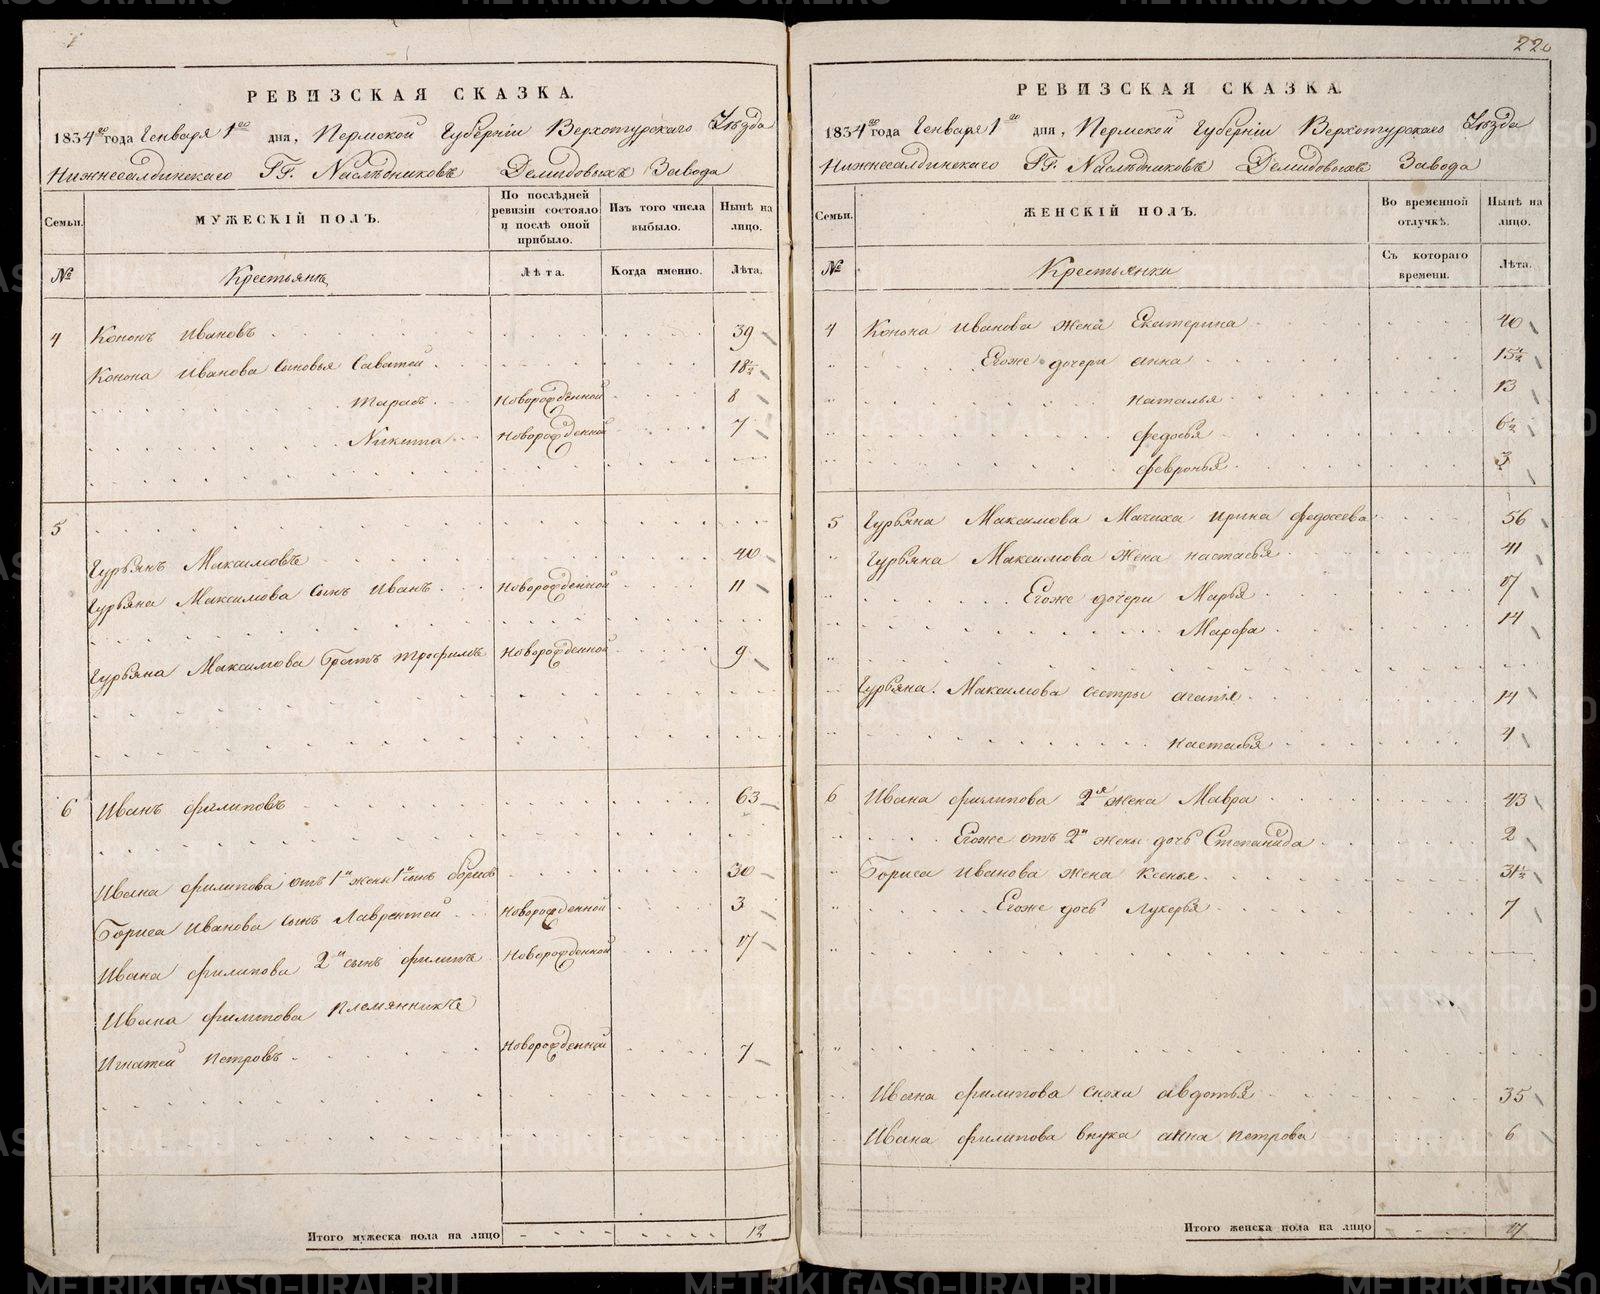 РЕВИЗСКАЯ СКАЗКА.
1834го года Генваря 1го дня, Пермской Губерніи Верхотурскаго Уѣзда
Нижнесалдинскаго ГГ. Наслѣдниковъ Демидовыхъ Завода
Семьи. МУЖЕСКІЙ ПОЛЪ. По послѣдней ревизіи состояло и послѣ оной прибыло. Изъ того числа выбыло. Нынѣ на лицо.
№ Крестьянъ Лѣта. Когда именно. Лѣта.
4 Кононъ Ивановъ 39
Конона Иванова сыновья Саватей 18½
Тарасъ Новорожденной 8
Никита Новорожденной 7
5
Гурьянъ Максимовъ 40
Гурьяна Максимова сынъ Иванъ Новорожденной 11
Гурьяна Максимова братъ Трофимъ Новорожденной 9
6 Иванъ Филиповъ 63
Ивана Филипова отъ 1й жены 1й сынъ Борисъ 30
Бориса Иванова сынъ Лаврентей Новорожденной 3
Ивана Филипова 2й сынъ Филипъ Новорожденной 17
Ивана Филипова племянникъ
Игнатей Петровъ Новорожденный 7
Итого мужеска пола на лицо 12
220
РЕВИЗСКАЯ СКАЗКА.
1834го года Генваря 1го дня, Пермской Губерніи Верхотурскаго Уѣзда
Нижнесалдинскаго ГГ. Наслѣдниковъ Демидовыхъ Завода
Семьи. ЖЕНСКІЙ ПОЛЪ. Во временной отлучкѣ. Нынѣ на лицо.
№ Крестьянки Съ котораго времени. Лѣта.
4 Конона Иванова жена Екатерина 40
Егоже дочери Анна 15½
Наталья 13
Федосья 6½
Февронья 3
5 Гурьяна Максимова Мачиха Ирина Федосеева 56
Гурьяна Максимова жена Настасья 41
Егоже дочери Марья 17
Марфа 14
Гурьяна Максимова сестры Агапія 14
Настасья 4
6 Ивана Филипова 2я жена Мавра 43
Егоже отъ 2й жены дочь Степанида 2
Бориса Иванова жена Ксенья 31½
Егоже дочь Лукерья 7
Ивана Филипова сноха Авдотья 35
Ивана Филипова внука Анна Петрова 6
Итого женска пола на лицо 17
METRIKI.GASO-URAL.RU